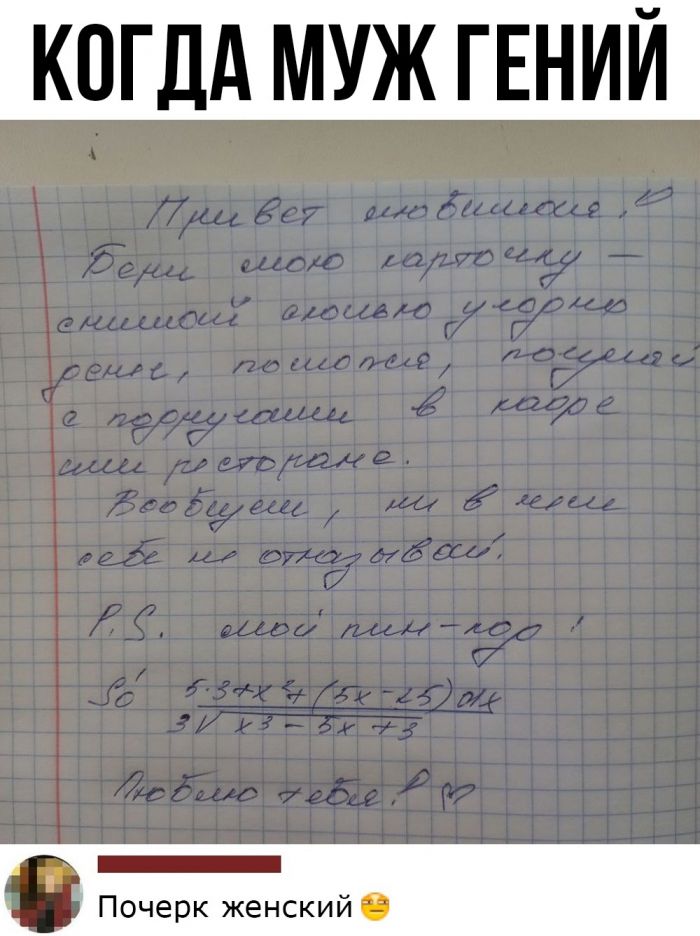 КОГДА МУЖ ГЕНИЙ
Привет любимая!
Бери мою карточку –
снимай сколько угодно
денег, помойся, покушай
с подругами в кафе
или ресторане.
Вообщем, ни в чем
себе не отказывай.
P.S. мой пин-код:
5·3+x²+(5x-25)dx
3√x3-5x+3
Люблю тебя!
Почерк женский